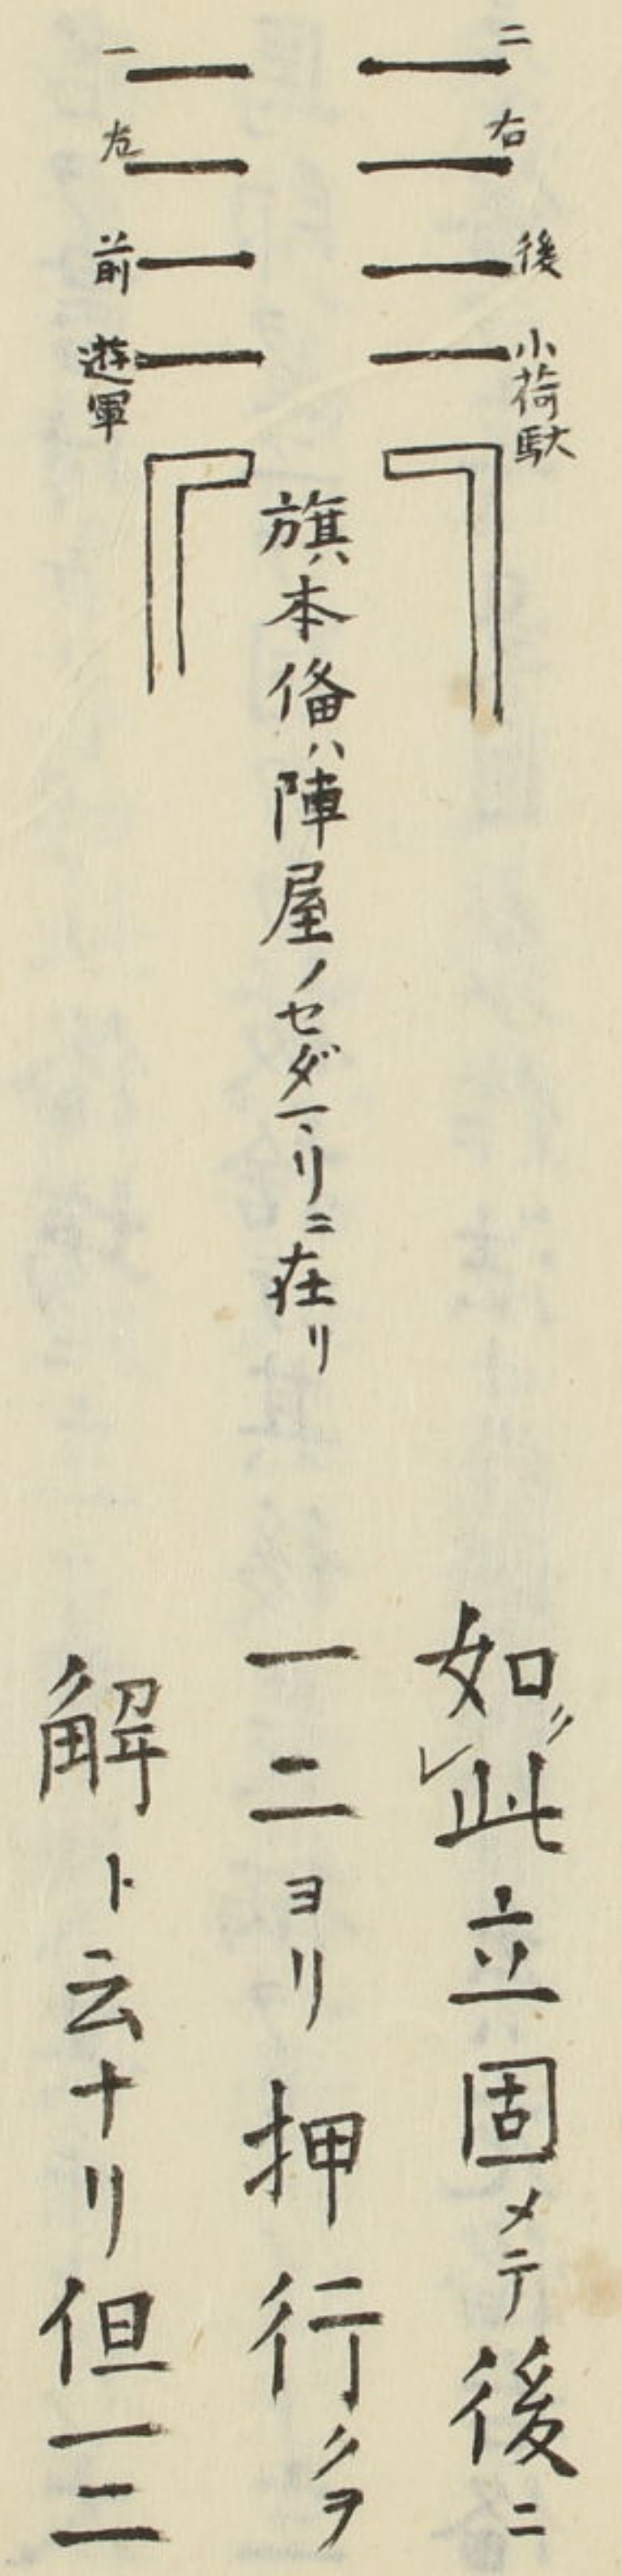 二
右
後
小荷駄
一
左
前
遊軍
旗本備ハ陣屋ノセダマリニ在リ
如〃㆑此立固メテ後ニ
一二ヨリ押行クヲ
解ト云ナリ但一二